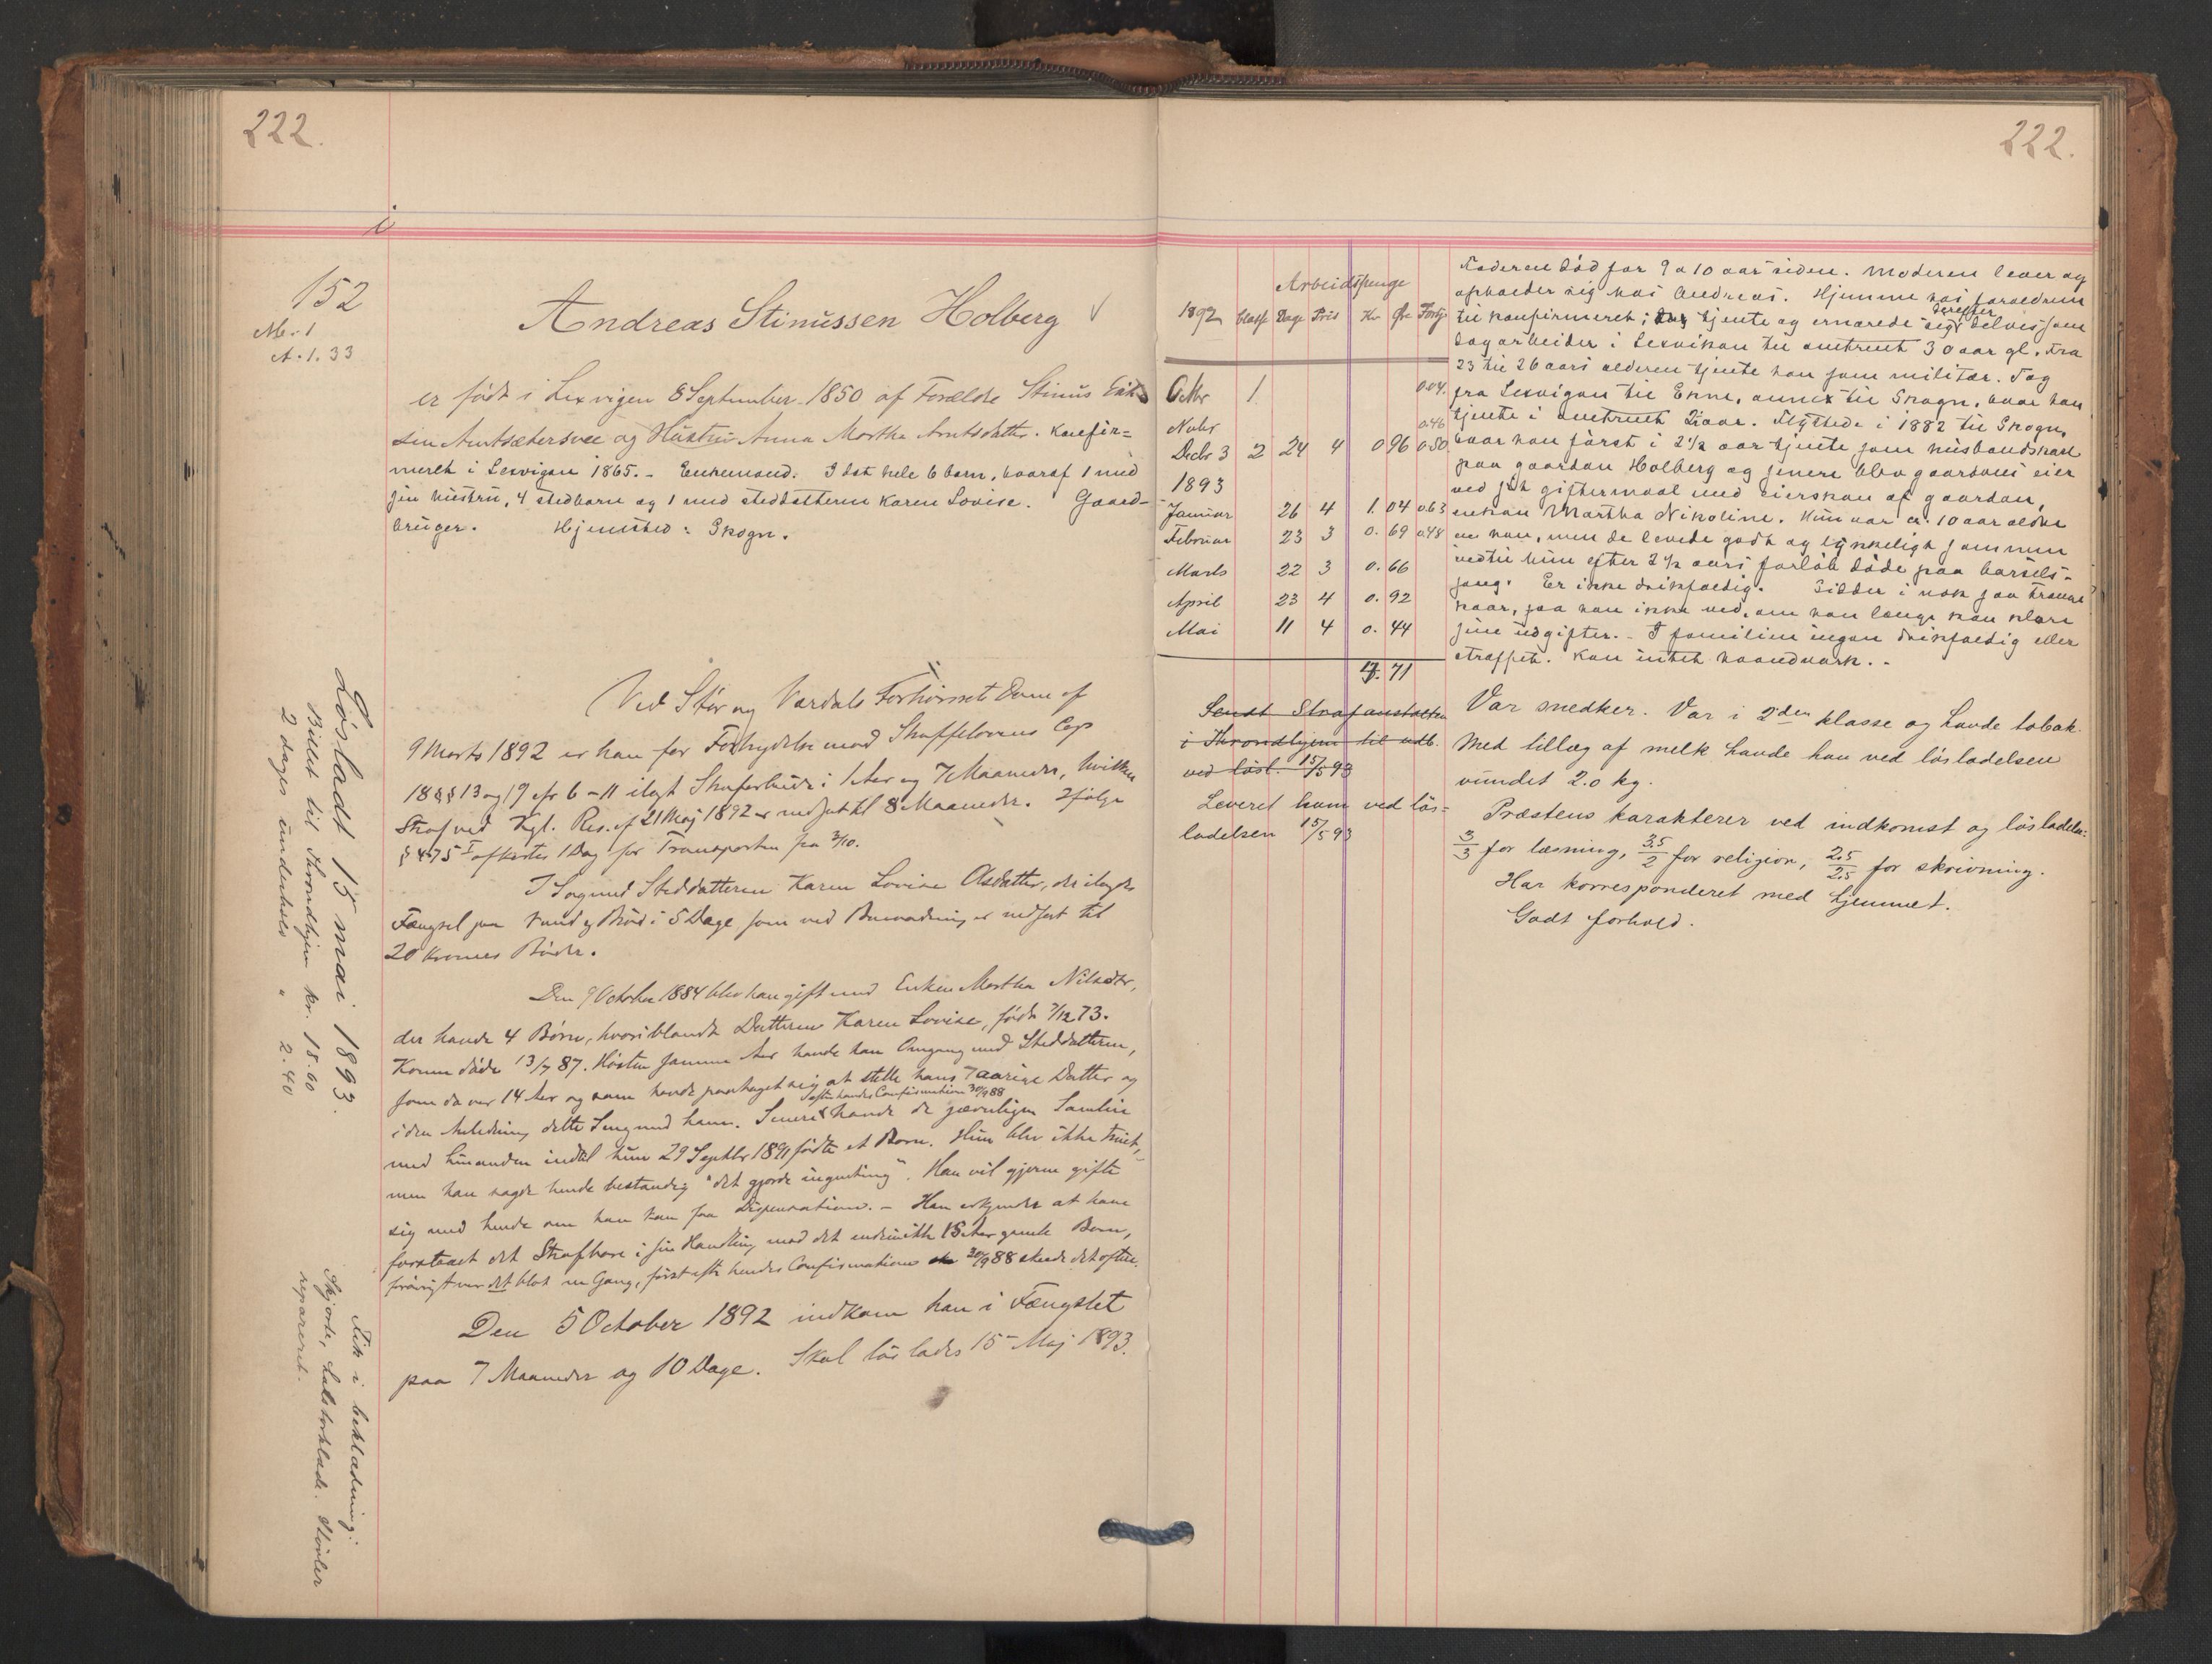 222.
i
152
M. 1
A. 1. 33
Andreas Stinussen Holberg
er født i Lexvigen 8 September 1850 af Forældre Stinus
sen Amtsætersvee og Hustru Anna Martha Arntsdatter. Konfir-
meret i Lexvigen 1865. - Enkemand. I det hele 6 barn, hvoraf 1 med
sin hustru, 4 stedbarn og 1 med steddatteren Karen Lovise. Gaard-
bruger. Hjemsted: Skogn.
Ved Stør og Værdals Forhørsrets Dom af
9 Marts 1892 er han for Forbrydelse mod Straffelovens Cap
18 §§ 13 og 19 cfr 6-11 ilagt Strafarbeide i 1 Aar og 7 Maaneder, hvilken
Straf ved Kgl. Res. af 21 Maj 1892 er nedsat til 8 Maaneder. Ifølge
§ 475 I afkortes 1 Dag for Transporten fra 3/10.
I Sagmed Steddatteren Karen Lovise Olsdatter, der ilagdes
Fængsel paa Vand og Brød i 5 Dage som ved Benaadning er nedsat til
20 Kroners Bøder.
Den 9 October 1884 blev han gift med Enken Martha Nilsdtr,
der havde 4 Børn, hvoriblandt Datteren Karen Lovise, født 7/12 73.
Konen døde 13/7 87. Høsten samme Aar havde han Omgang med Steddatteren,
som da var 14 Aar og som havde paataget sig at stelle hans 7 aarige Datter og
i den Anledning delte Seng med ham. Senere efter hendes Confirmation 30/9 88 havde de jævnligen Samleie
med hinanden indtil hun 29 Septbr 1891 fødte et Barn. Hun blev ikke truet,
men han sagde hende bestandig "det gjorde ingenting". Han vil gjerne gifte
sig med hende om han kan faa Dispensation. - Han erkjender at have
forstaaet det Strafbare i sin Handling mod det endnu ikke 15 Aar gamle Barn,
forøvrigt var det blot en Gang, først efter hendes Confirmation 30/9 88 skede det oftere.
Den 5 October 1892 indkom han i Fængslet
paa 7 Maaneder og 10 Dage. Skal løslades 15 Maj 1893.
Løsladt 15 mai 1893.
Billet til Throndhjem kr. 18.00
2 dages underhold " 2.40
Fik i beklædning:
Skjorte, halstørklæde. Støvler
repareret.
222.
Arbeidspenge
1892 Classe Dage Pris Kr Øre Fortj
Octbr 1. 004.
Novbr 046
Decbr 3 2 24 4 0 96 050
1893
Januar 26 4 1. 04 063
Februar 23 3 0. 69 048
Marts 22 3 0. 66
April 23 4 0. 92
Mai 11 4 0. 44
4. 71
Sendt Strafanstalten
i Throndhjem til udb.
ved løsl. 15/5 93
Leveret ham ved løs-
ladelsen 15/5 93
Faderen død for 9 a 10 aar siden. Moderen lever og
opholder sig hos Andreas. Hjemme hos forældrene
til konfirmeret; tjente og ernærede sig derefter delvis som
dagarbeider i Lexviken til omtrent 30 aar gl. Fra
23 til 26 aars alderen tjente han som militær. Tog
fra Lexvigen til Ekne, annex til Skogn, hvor han
tjente i omtrent 2 aar. Flyttede i 1882 til Skogn,
hvor han først i 2 1/2 aar tjente som husbondskarl
paa gaarden Holberg og senere blev gaardens eier
ved sit giftermaal med eiersken af gaarden,
enken Martha Nikoline. Hun var ca. 10 aar ældre
en han, men de levede godt og lykkeligt sammen
indtil hun efter 2 1/2 aars forløb døde paa barsels-
seng. Er ikke drikfældig. Sidder i nok saa trange
kaar, saa han ikke ved, om han længe kan klare
sine udgifter. - I familien ingen drikfældig eller
straffet. Kan intet haandværk. -
Var snedker. Var i 2den klasse og havde tobak.
Med tillæg af melk havde han ved løsladelsen
vundet 2.0 kg.
Præstens karakterer ved indkomst og løsladelse:
3/3 for læsning, 3.5/2 for religion, 2.5/2.5 for skrivning.
Har korresponderet med hjemmet.
Godt forhold.